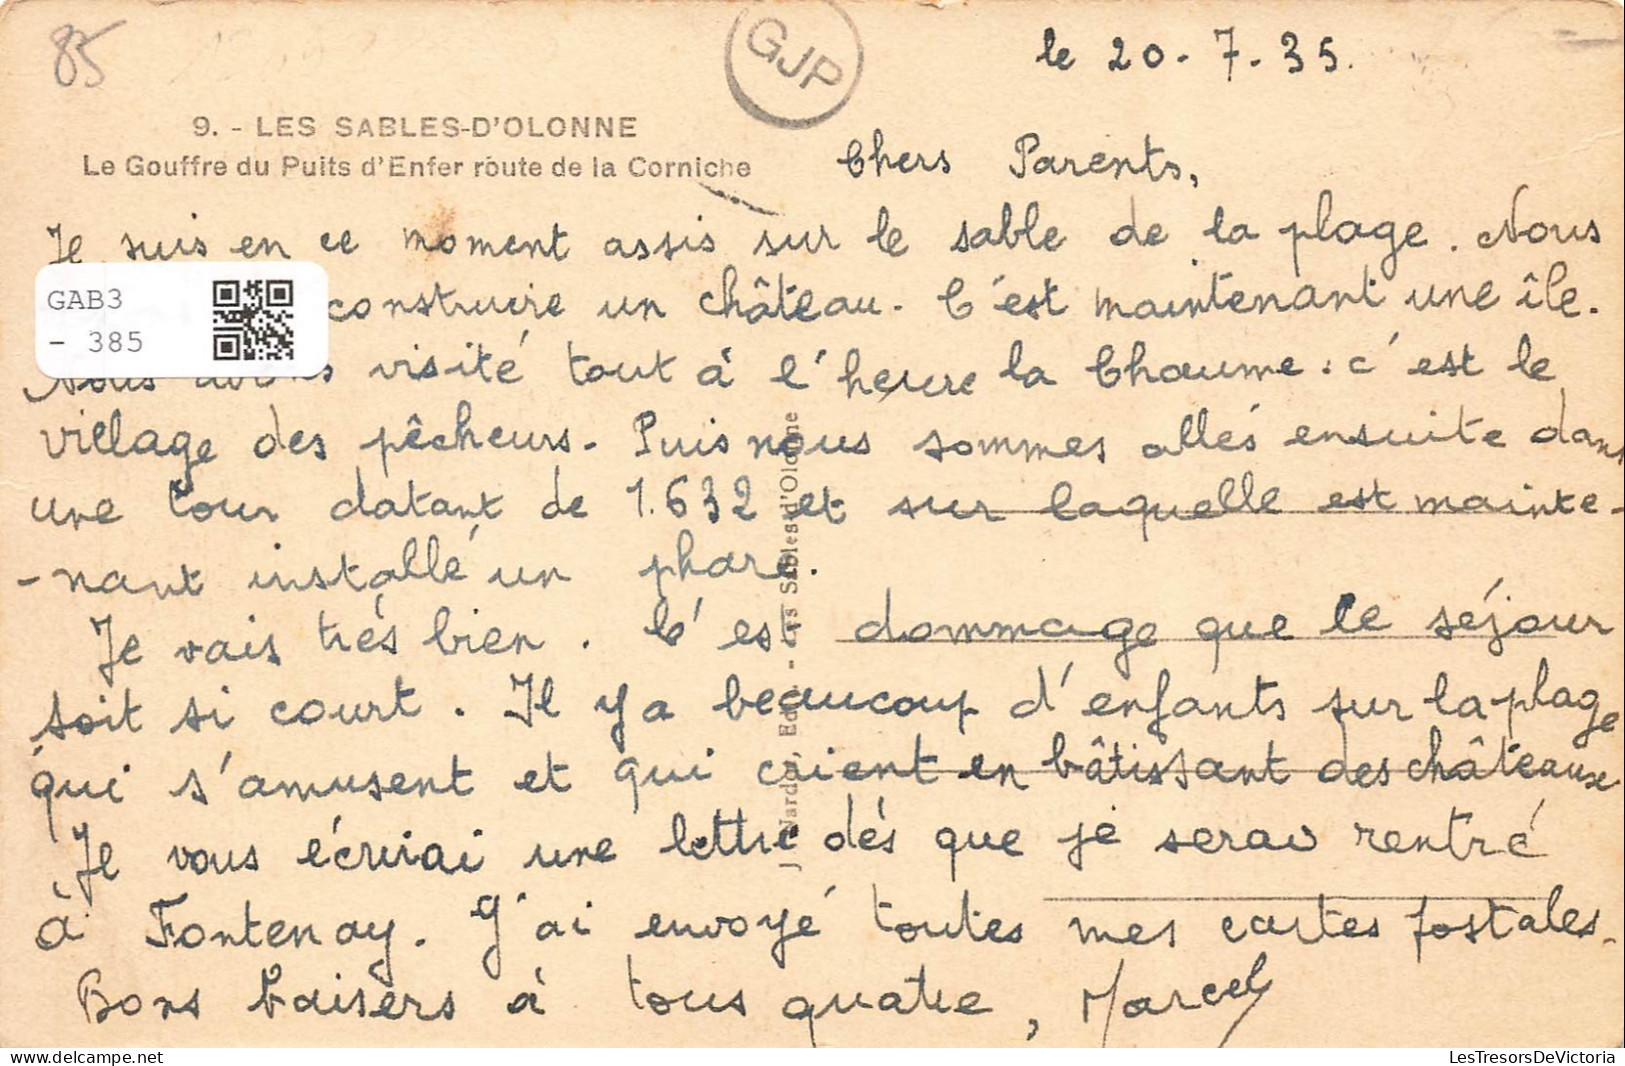 85
GJP
le 20-7-35.
9. - LES SABLES-D'OLONNE
Le Gouffre du Puits d'Enfer route de la Corniche
Chers Parents,
Je suis en ce moment assis sur le sable de la plage. Nous
construire un château. C'est maintenant une île.
GAB3
- 385
Nous avons visité tout à l'heure la Chaume : c'est le
village des pêcheurs. Puis nous sommes allés ensuite dans
une tour datant de 1.632 et sur laquelle est mainte-
-nant installé un phare.
Je vais très bien. C'est dommage que le séjour
soit si court. Il y a beaucoup d'enfants sur la plage
qui s'amusent et qui crient en bâtissant des châteaux
Je vous écrirai une lettre dès que je serai rentré
à Fontenay. J'ai envoyé toutes mes cartes postales.
Bons baisers à tous quatre, Marcel
Nardo, Ed. - Les Sables d'Olonne
LesTresorsDeVictoria
delcampe.net